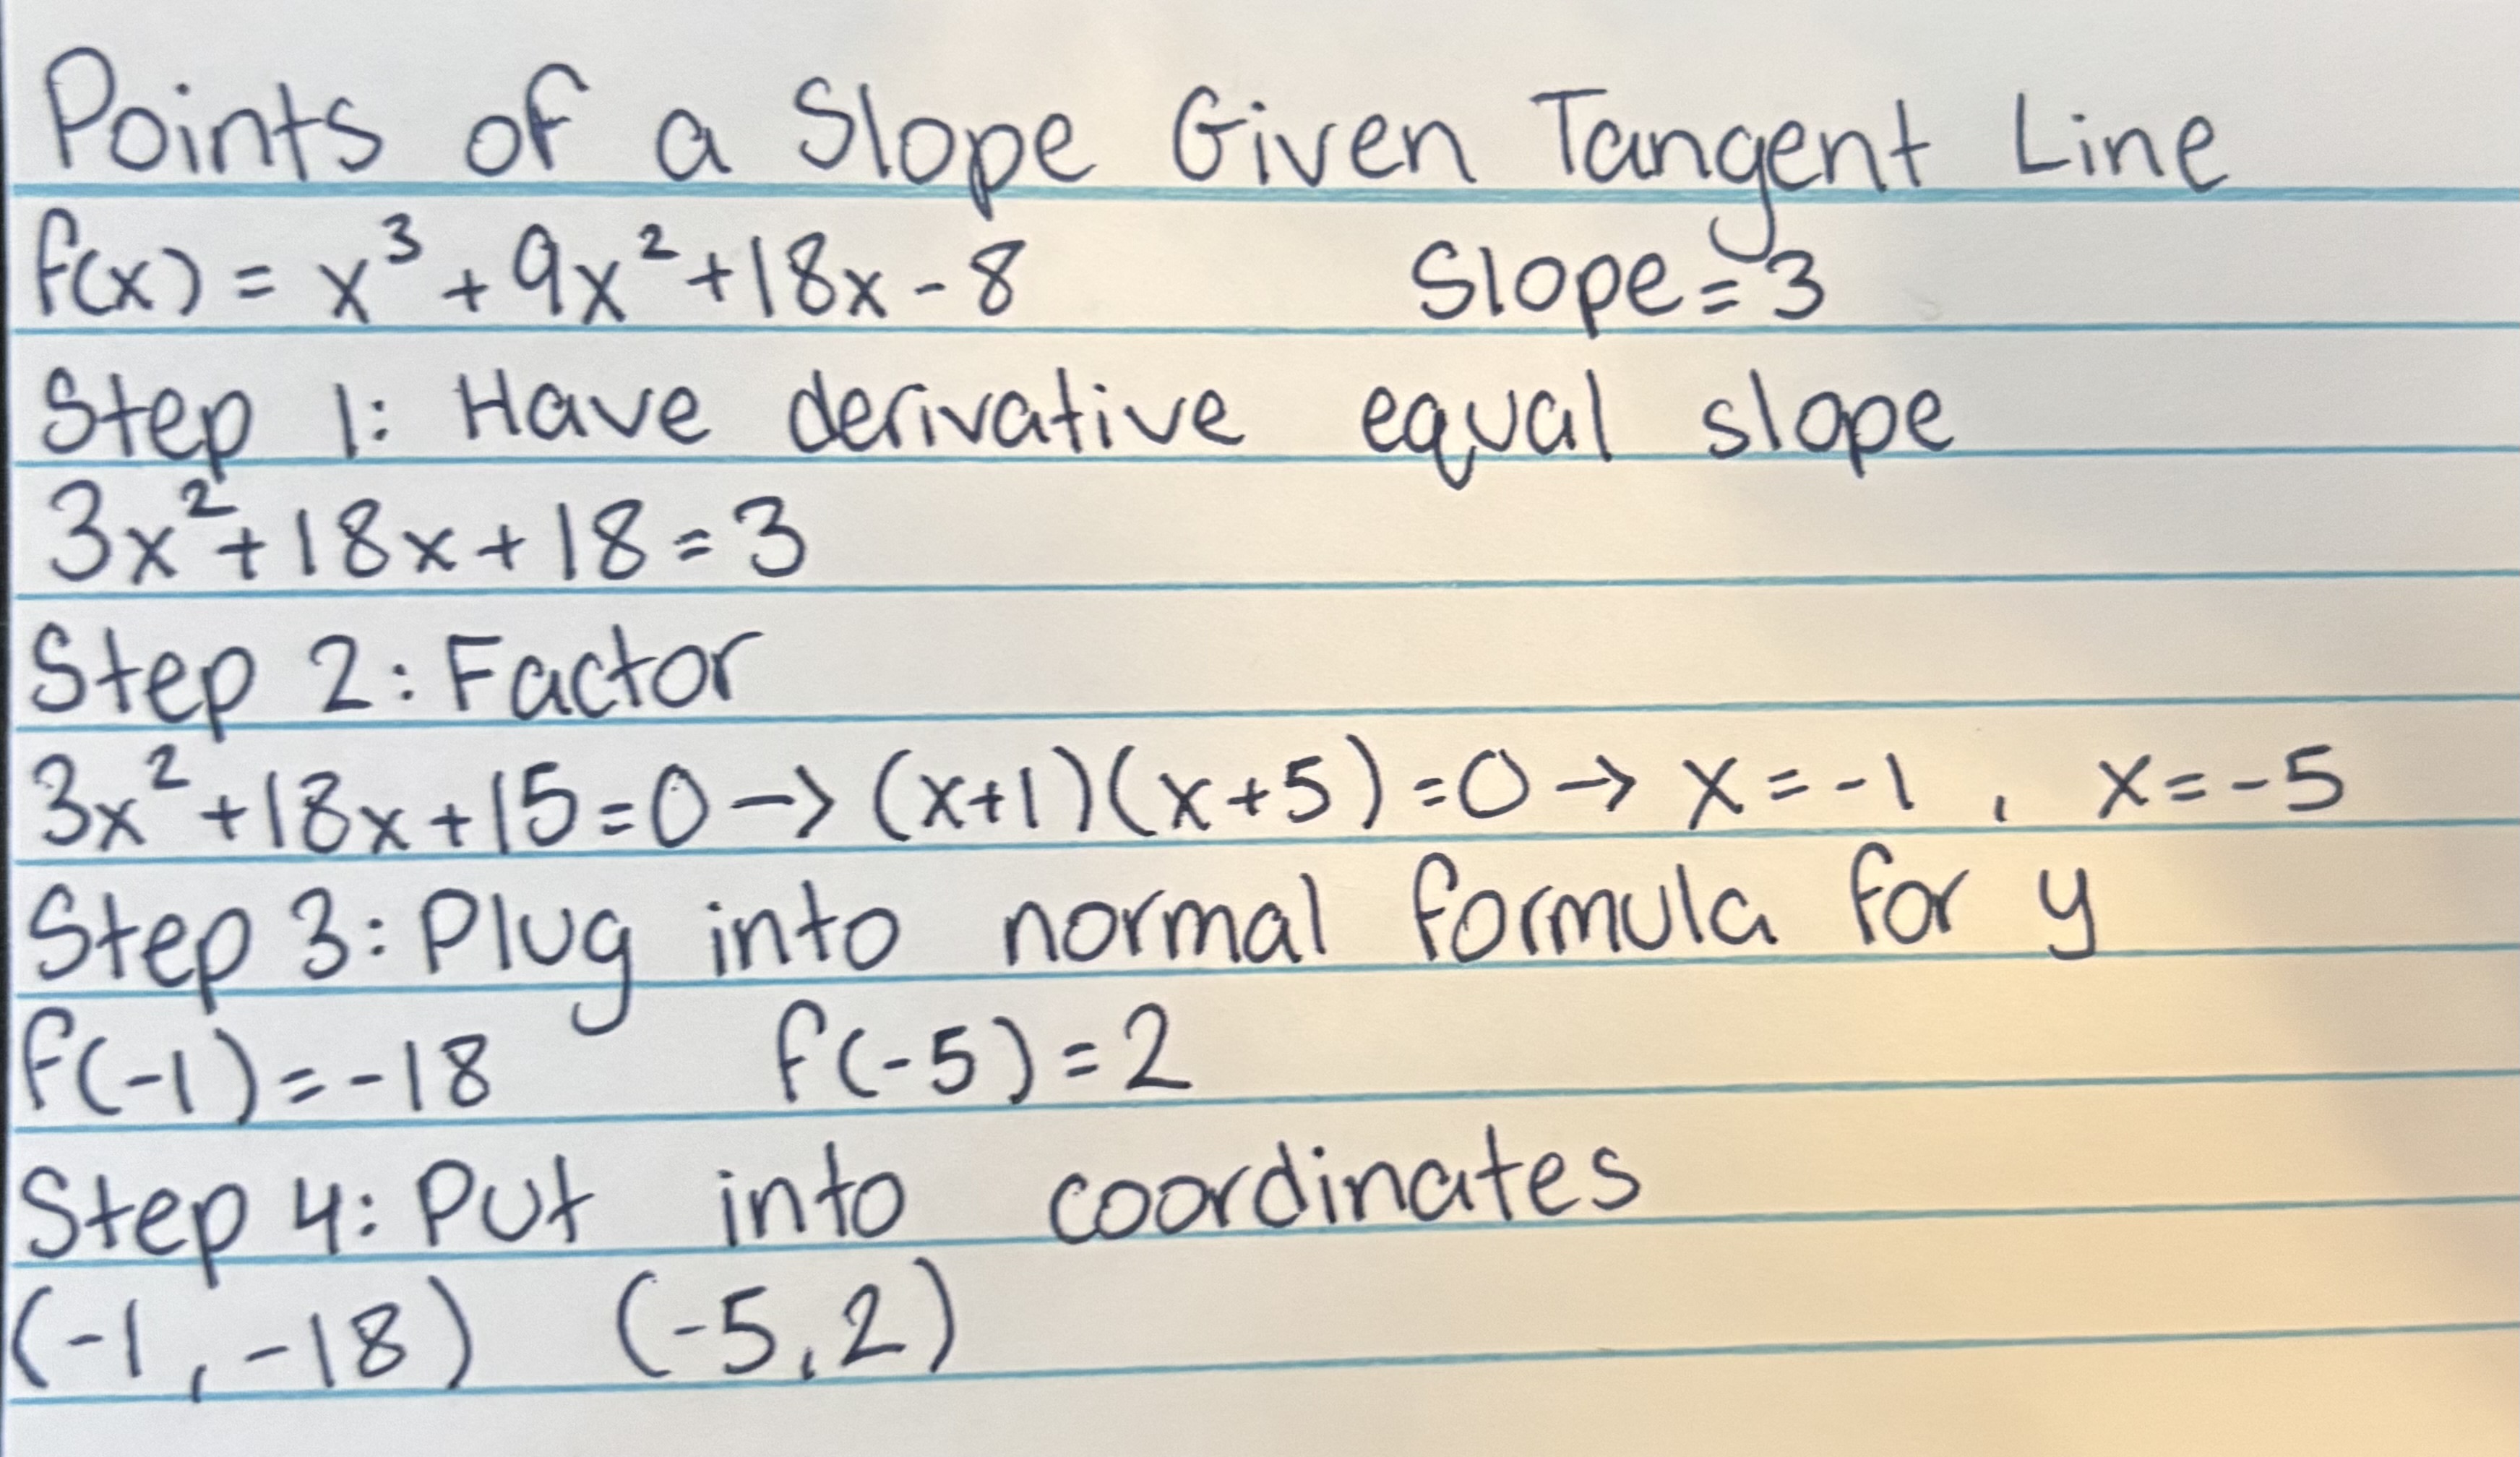 Points of a Slope Given Tangent Line
f(x) = x³ + 9x² + 18x - 8 Slope = 3
Step 1: Have derivative equal slope
3x² + 18x + 18 = 3
Step 2: Factor
3x² + 18x + 15 = 0 → (x+1)(x+5) = 0 → x = -1 , x = -5
Step 3: Plug into normal formula for y
f(-1) = -18 f(-5) = 2
Step 4: Put into coordinates
(-1, -18) (-5, 2)